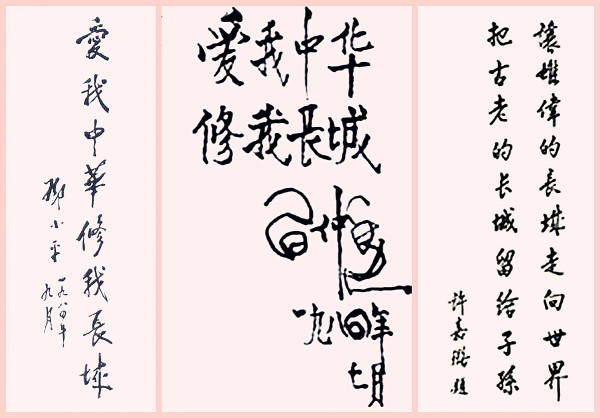 愛我中華修我長城
鄧小平
一九八四年
九月
愛我中华
修我長城
習仲勛
一九八四年
七月
讓雄偉的長城走向世界
把古老的长城留给子孫
許嘉璐題